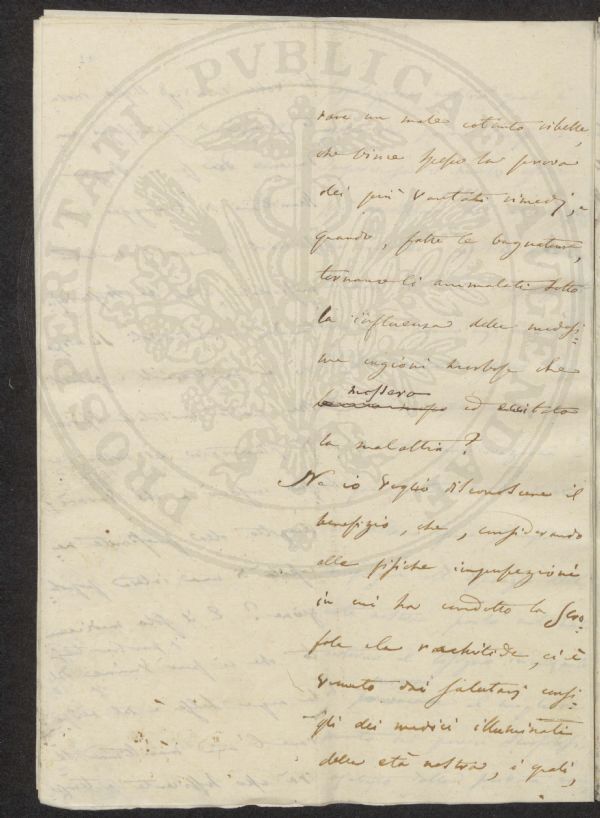 PROSPERITATI PVBLICAE AVGENDAE
rare un male cotanto ribelle,
che vince spesso la prova
dei più vantati rimedj, e
quando, fatte le bagnature,
tornano li ammalati sotto
la influenza delle medesi-
me cagioni morbose che
mossero ed
la malattia?
Ne io voglio disconoscere il
benefizio, che, considerando
alle fisiche imperfezioni
in cui ha condotto la Scro-
fola e la rachitide, ci è
venuto dai salutarj consi-
gli dei medici illuminati
della età nostra, i quali,